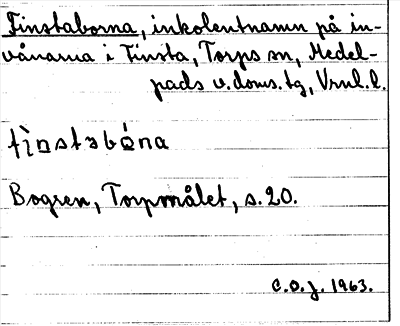 Finstaborna, inkolentnamn på in-
vånarna i Finsta, Torps sn, Medel-
pads v. doms. tg, Vrnl. l.
Bogren, Torpmålet, s. 20.
C.O.J. 1963.